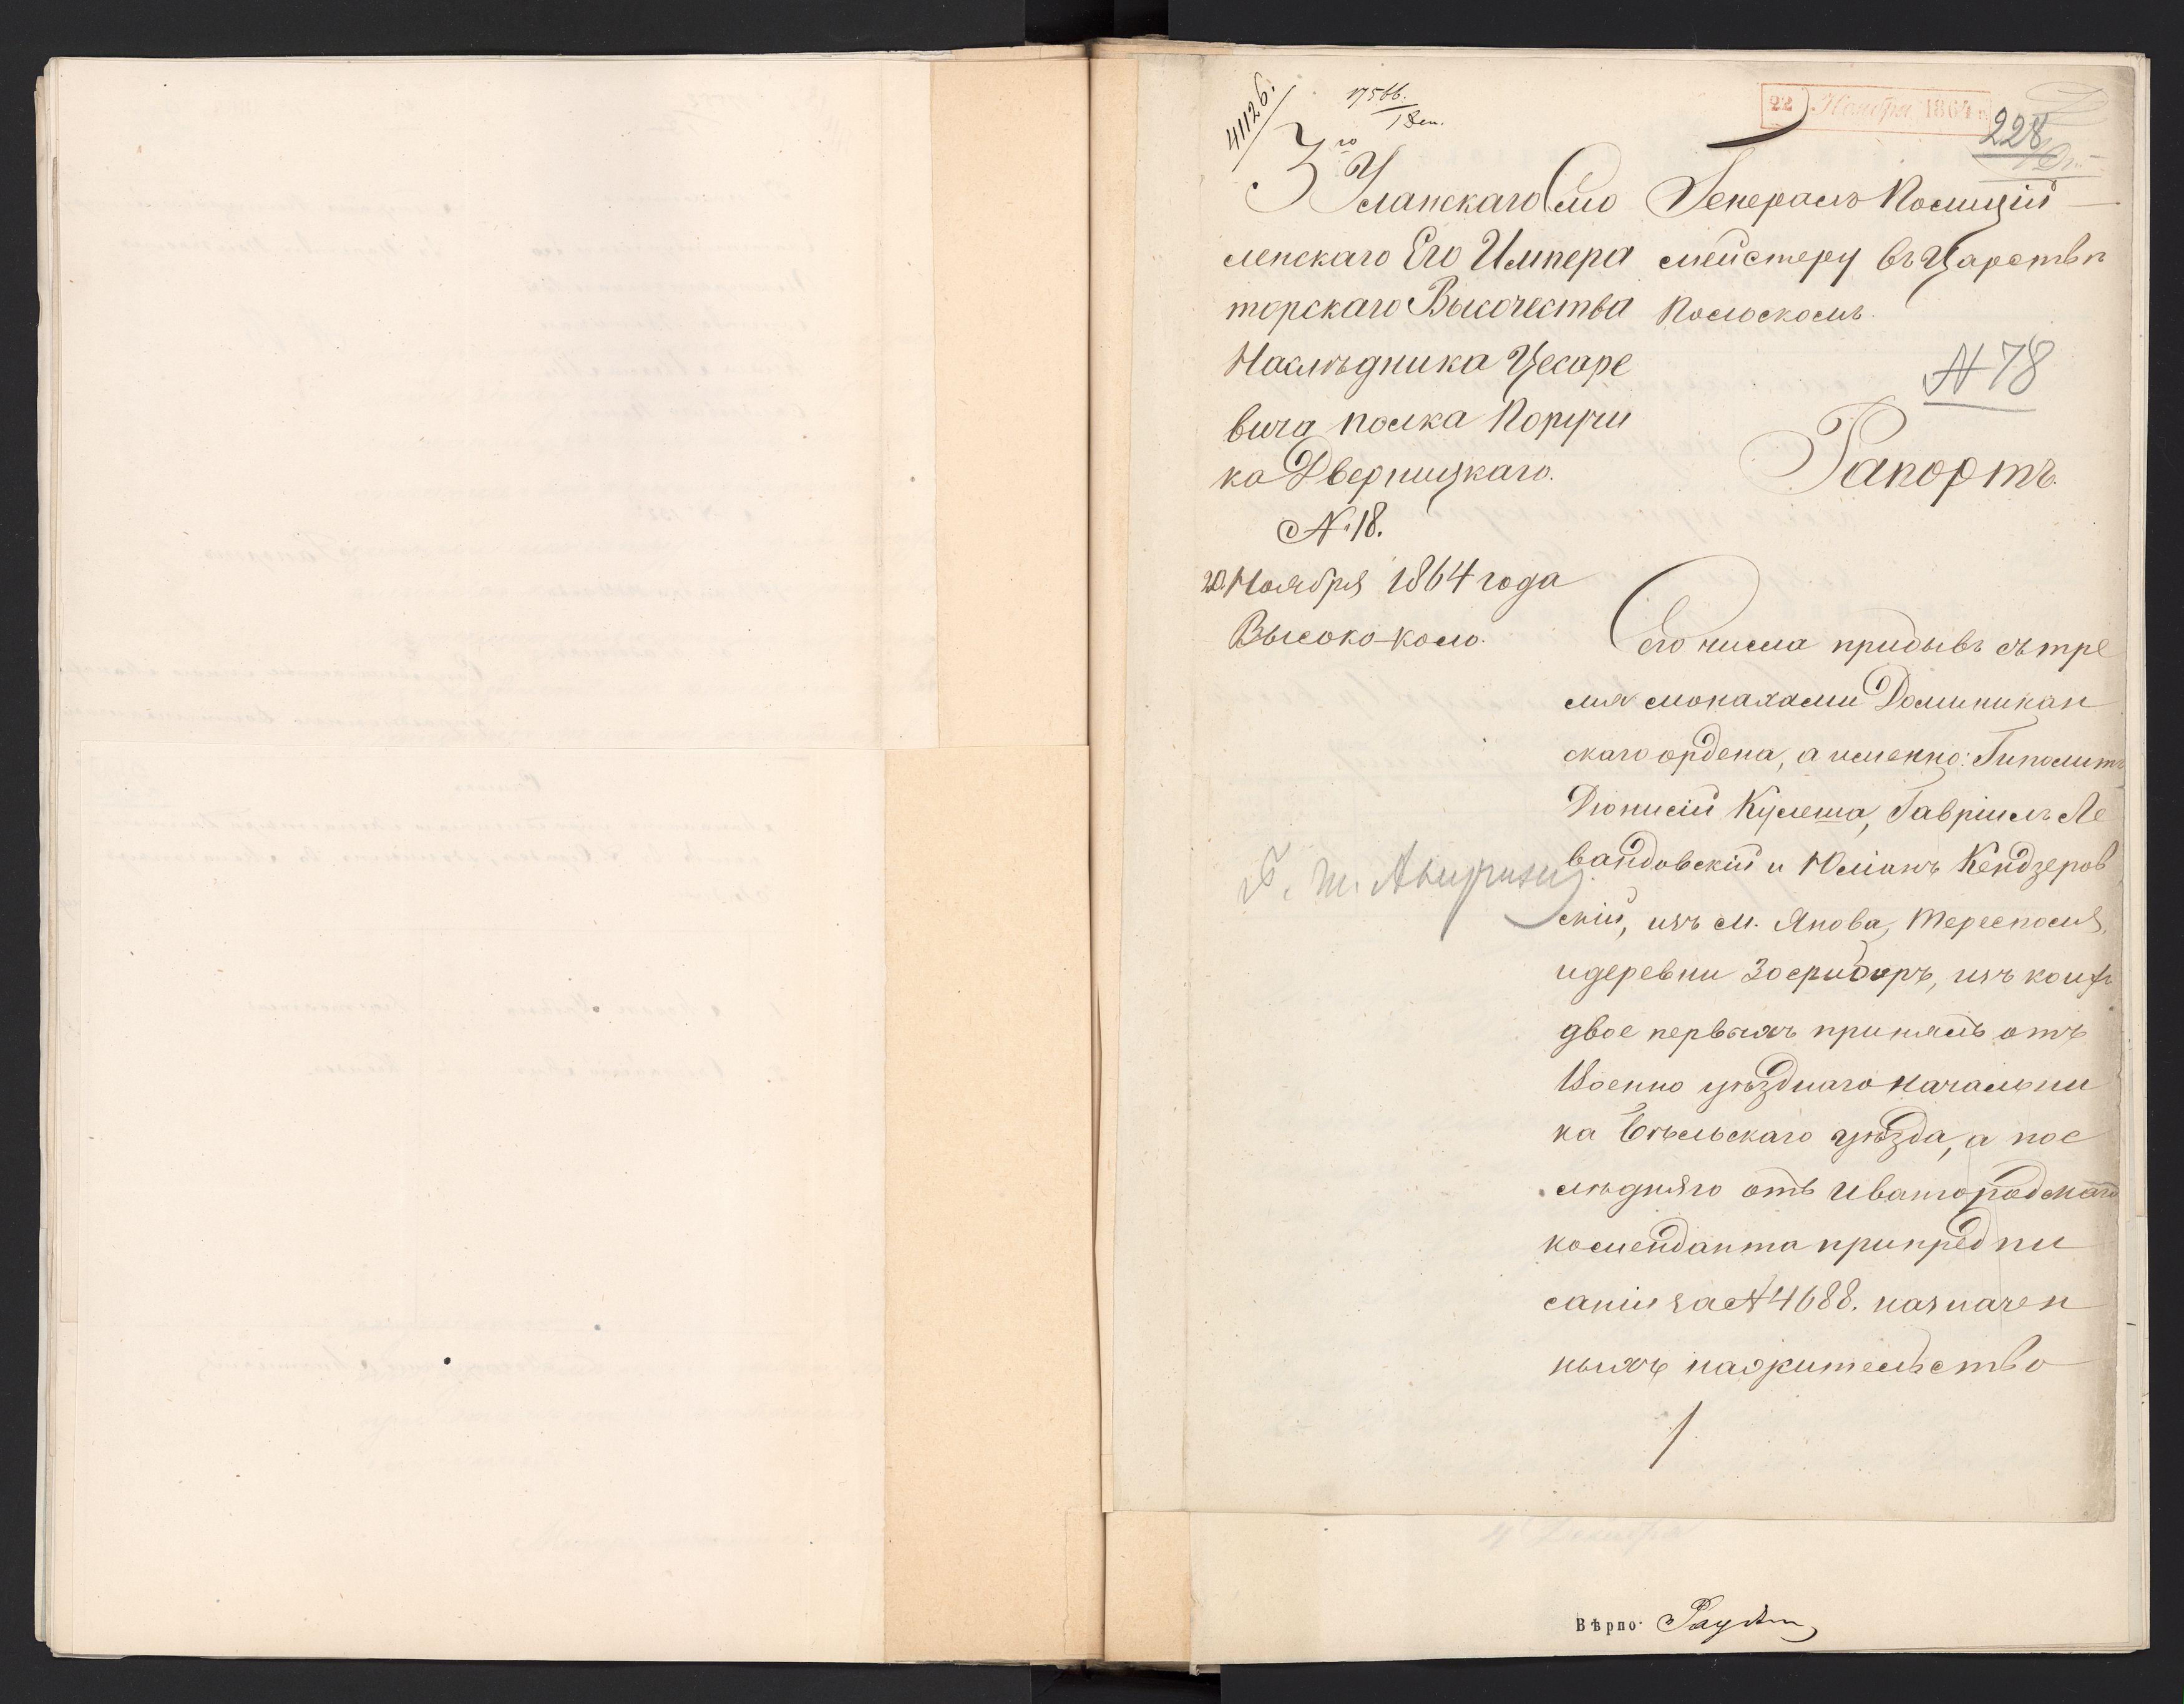 41126.
17566.
1 Зен.
22 Ноября 1864
228
3го Уланскаго Смо
ленскаго Его Импера
торскаго Высочества
Наслѣдника Цесаре
вича полка Поручи
ка Дверницкаго.
№ 18.
20 Ноября 1864 года
Высоко-коло.
Генералъ Полиций
мейстеру въ Царствѣ
Польскомъ.
№ 78
Рапортъ.
Сего числа прибывъ съ тре
мя монахами Доминикан
скаго ордена, а именно: Гиполитъ
Дюнисій Кулеша, Гавріилъ Ле
вандовскій и Юліанъ Кендзеров
скій, изъ м. Янова, Тересполя,
и деревни, изъ коихъ
двое первыхъ принялъ отъ
Военно уѣзднаго начальни
ка Бѣльскаго уѣзда, а пос
лѣдняго отъ Ивангородскаго
коменданта при предпи
саніи за № 4688. назначен
ныхъ на жительство
1
Вѣрно: